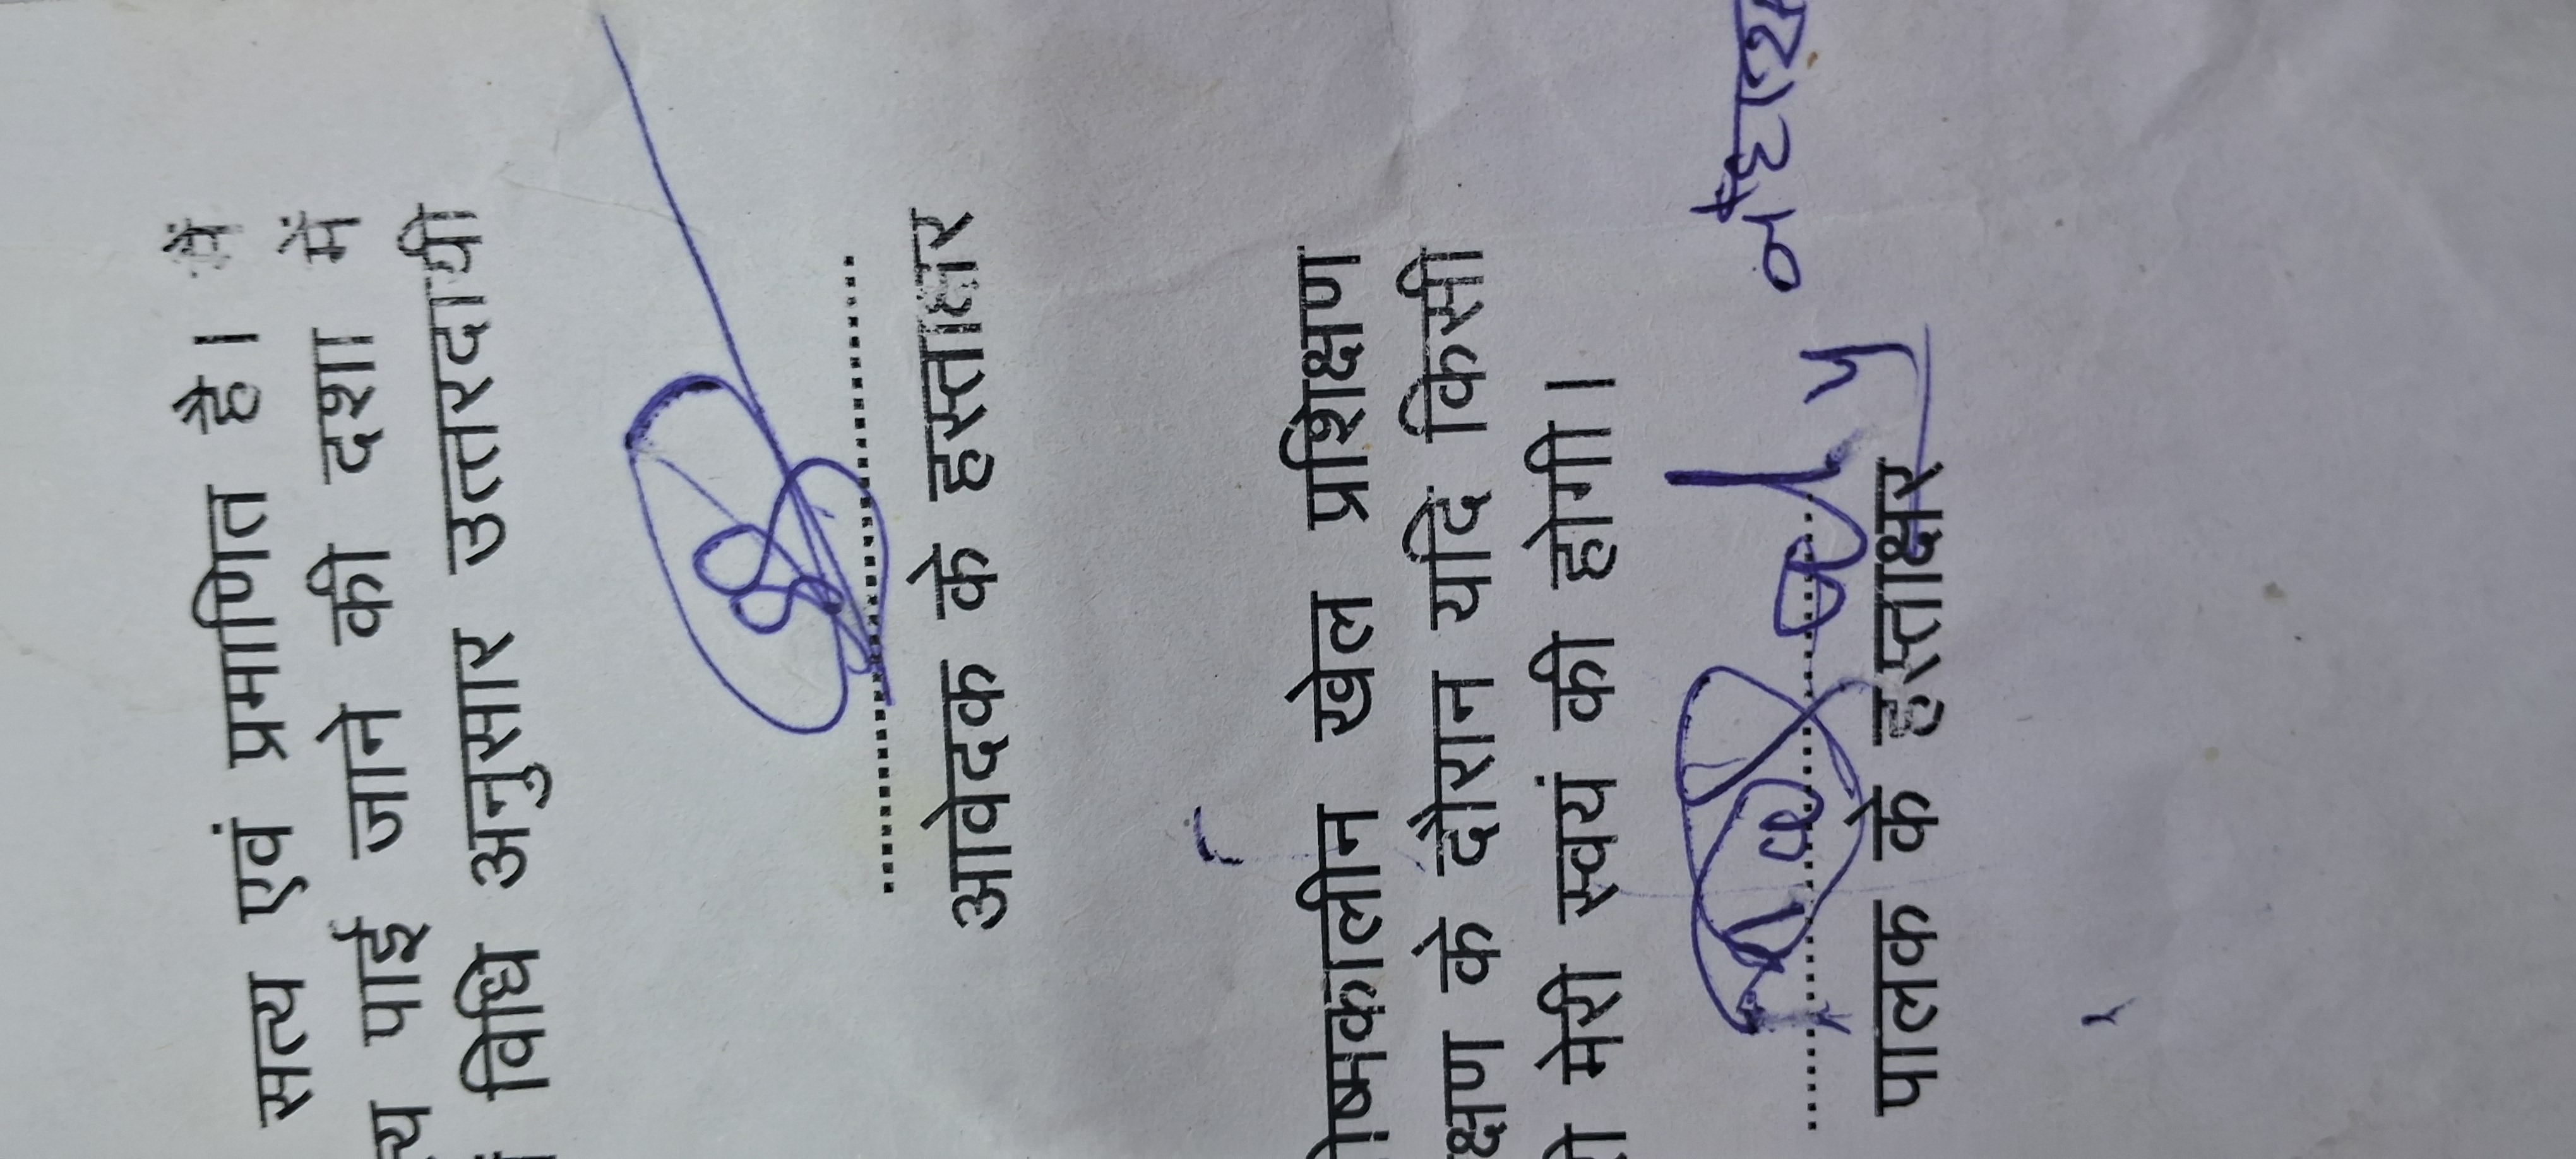 सत्य एवं प्रमाणित है। मैं
पाई जाने की दशा में
विधि अनुसार उत्तरदायी
आवेदक के हस्ताक्षर
ग्रीष्मकालीन खेल प्रशिक्षण
के दौरान यदि किसी
मेरी स्वयं की होगी।
पालक के हस्ताक्षर